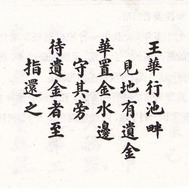 王華行池畔
見地有遺金
華置金水邊
守其旁
待遺金者至
指還之